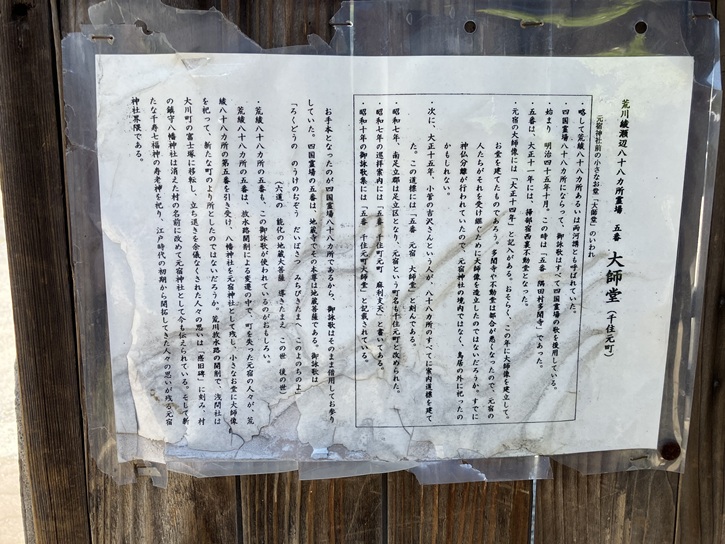 荒川綾瀬辺八十八カ所霊場　五番　大師堂（千住元町）
元宿神社前の小さなお堂「大師堂」のいわれ
・略して荒綾八十八カ所あるいは両河講とも呼ばれていた。
・四国霊場八十八カ所にならって、御詠歌はすべて四国霊場の歌を使用している。
・始まり　明治四十五年十月。この時は「五番　隅田村多聞寺」であった。
・五番は、大正十一年には、掃部宿西裏不動堂となった。
・元宿の大師像には「大正十四年」と記入がある。おそらく、この年に大師像を建立して。
お堂を建てたものであろう。多聞寺や不動堂は都合が悪くなったので、元宿の
人たちがそれを受け継ぐために大師像を造立したのではないだろうか。すでに
神仏分離が行われていたので、元宿神社の境内ではなく、鳥居の外に祀ったの
かもしれない。
・次に、大正十五年、小菅の吉沢さんという人が、八十八カ所のすべてに案内道標を建て
た。この道標には「五番　元宿　大師堂」と刻んである。
・昭和七年、南足立郡は足立区となり、元宿という町名も千住元町と改められた。
・昭和七年の巡拝案内には「五番　千住元町　麻利支天」と書いてある。
・昭和十年の御詠歌集には「五番　千住元町大師堂」と記載されている。
お手本となったのが四国霊場八十八カ所であるから、御詠歌はそのまま借用してお参り
していた。四国霊場の五番は、地蔵寺でその本尊は地蔵菩薩である。御詠歌は
「ろくどうの　のうけのぢぞう　だいぼさつ　みちびきたまへ　このよのちのよ」
（六道の　能化の地蔵大菩薩　導きたまえ　この世　後の世）
・荒綾八十八カ所の五番も、この御詠歌が使われているのがおもしろい。
荒綾八十八カ所の五番は、放水路開削による変遷の中で、町を失った元宿の人々が、荒
綾八十八カ所の第五番を引き受け、八幡神社を元宿神社として残し、小さなお堂に大師像
を祀って、新たな町のより所としたのではないだろうか。荒川放水路の開削で、浅間社は
大川町の富士塚に移転し、立ち退きを余儀なくされた人々の思いは「感旧碑」に刻み、村
の鎮守八幡神社は消えた村の名前に改めて元宿神社として今も伝えられている。そして新
たな千寿七福神の寿老神を祀り、江戸時代の初期から開拓してきた人々の思いが残る元宿
神社界隈である。